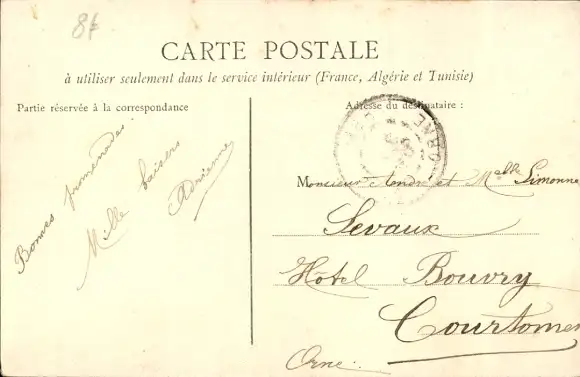 8f
CARTE POSTALE
à utiliser seulement dans le service intérieur (France, Algérie et Tunisie)
Partie réservée à la correspondance
Adresse du destinataire :
ORNE
Bonnes promenades.
Mille baisers
Adrienne
Monsieur Andre et Mlle Simonne
Levaux
Hôtel Bouvry
Courtomer
Orne.